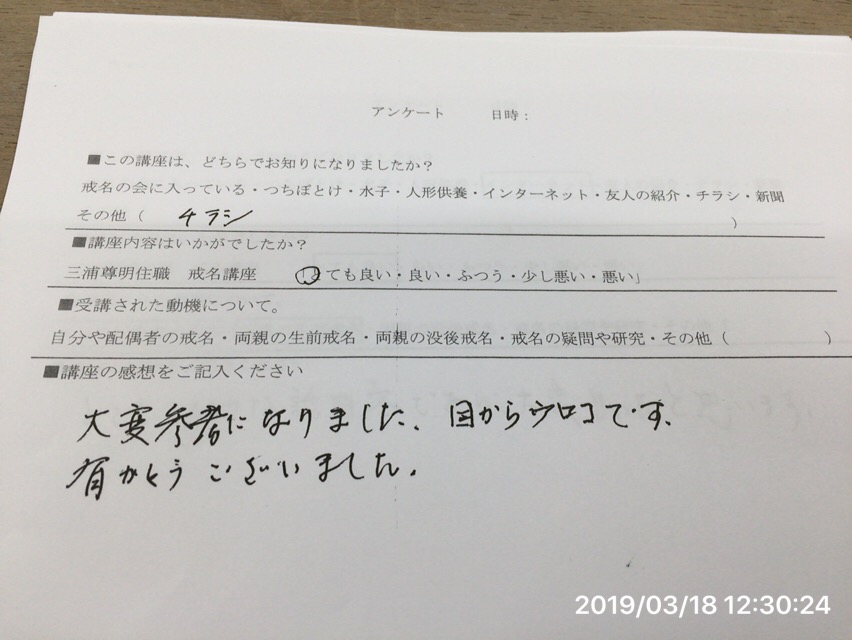 アンケート　　日時：
■この講座は、どちらでお知りになりましたか？
戒名の会に入っている・つちぼとけ・水子・人形供養・インターネット・友人の紹介・チラシ・新聞
その他（　チラシ　）
■講座内容はいかがでしたか？
三浦尊明住職　戒名講座　「とても良い・良い・ふつう・少し悪い・悪い」
■受講された動機について。
自分や配偶者の戒名・両親の生前戒名・両親の没後戒名・戒名の疑問や研究・その他（　）
■講座の感想をご記入ください
大変参考になりました、目からウロコです、
有がとうございました。
2019/03/18 12:30:24